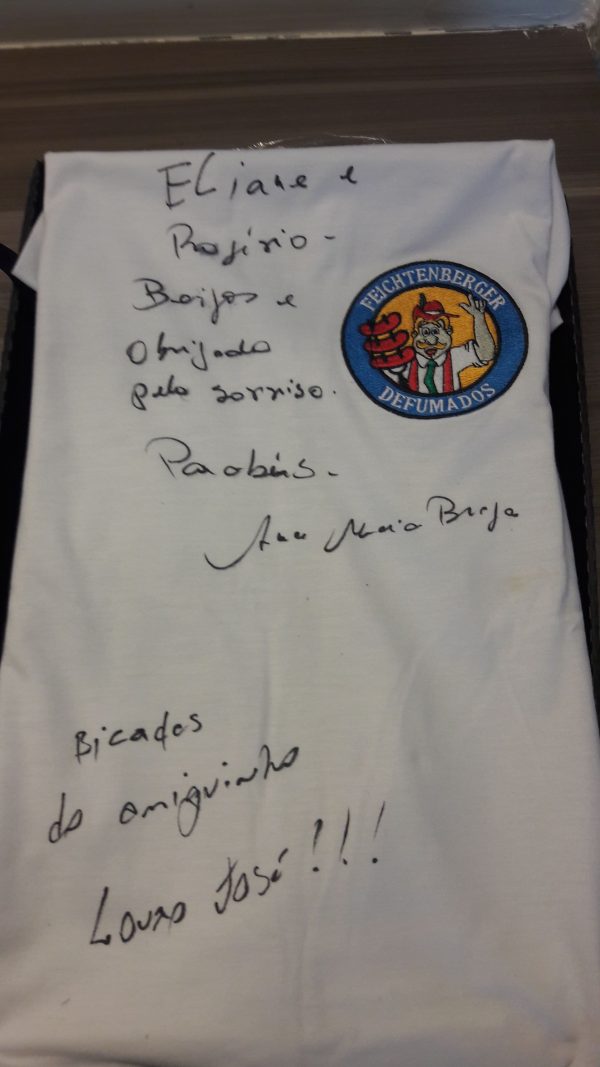 Eliane e
Rogério -
Beijos e
Obrigada
pelo sorriso.
Parabéns.
Ana Maria Braga
FEICHTENBERGER
DEFUMADOS
Bicadas
do amiguinho
Louro José!!!